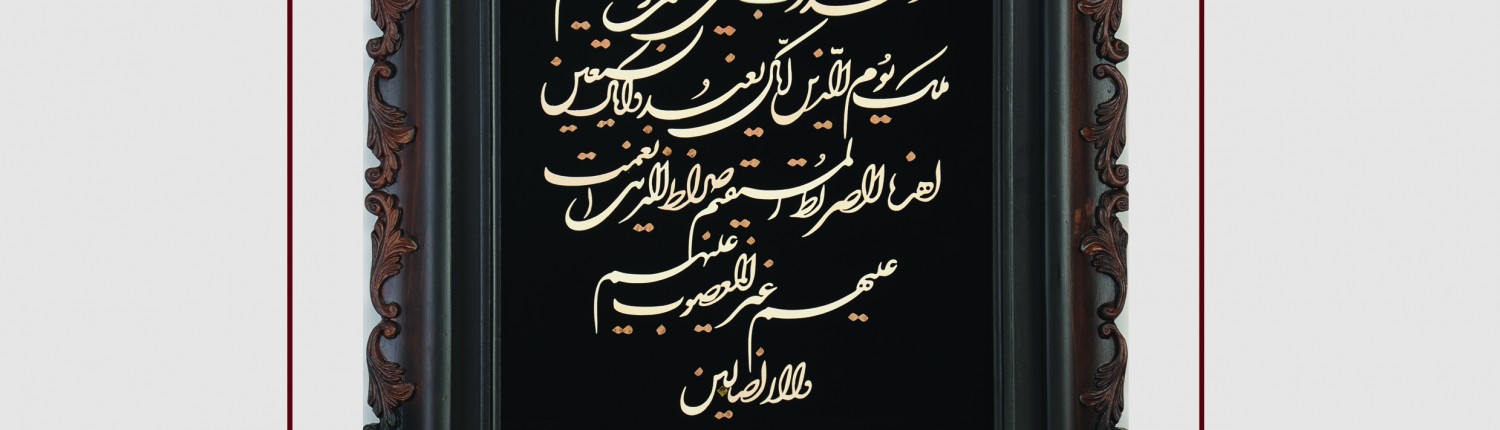 ملک یوم الدین ایاک نعبد و ایاک نستعین
اهدنا الصراط المستقیم صراط الذین انعمت
علیهم غیر المغضوب علیهم
ولا الضالین